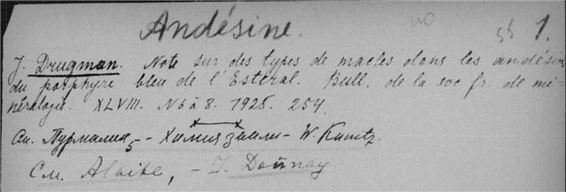 Andésine. 1.
J. Drugman. Note sur des types de macles dans les andésin.
du porphyre bleu de l'Estéral. Bull. de la soc fr. de mi-
néralogie. XLVIII. N 6 à 8. 1925. 254
См. Турмалин, - Химия W. Kunitz.
См. Albite, - J. Donnay